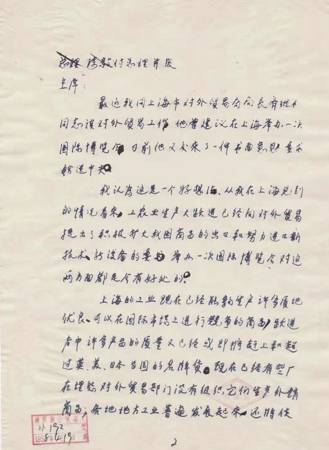 主席：
最近我同上海市对外贸易公司长
同志谈对外贸易工作，他曾建议在上海举办一次
国际博览会，日前他又来了一件书面意见，
转送中央。
我认为这是一个好想法，从我在上海见到
的情况看来，工农业生产大跃进已经向对外贸易
提出了积极扩大我国商品的出口和努力进口新
技术、新设备的要求，举办一次国际博览会对这
两方面都是会有好处的。
上海的工业现在已经能够生产许多质地
优良、可以在国际市场上进行竞争的商品，跃进
当中许多产品的质量又已经或即将赶上和超
过英、美、日本等国的名牌货。现在已有些厂
在埋怨对外贸易部门没有组织它们生产外销
商品，各地地方工业普遍发展起来，还将使
2